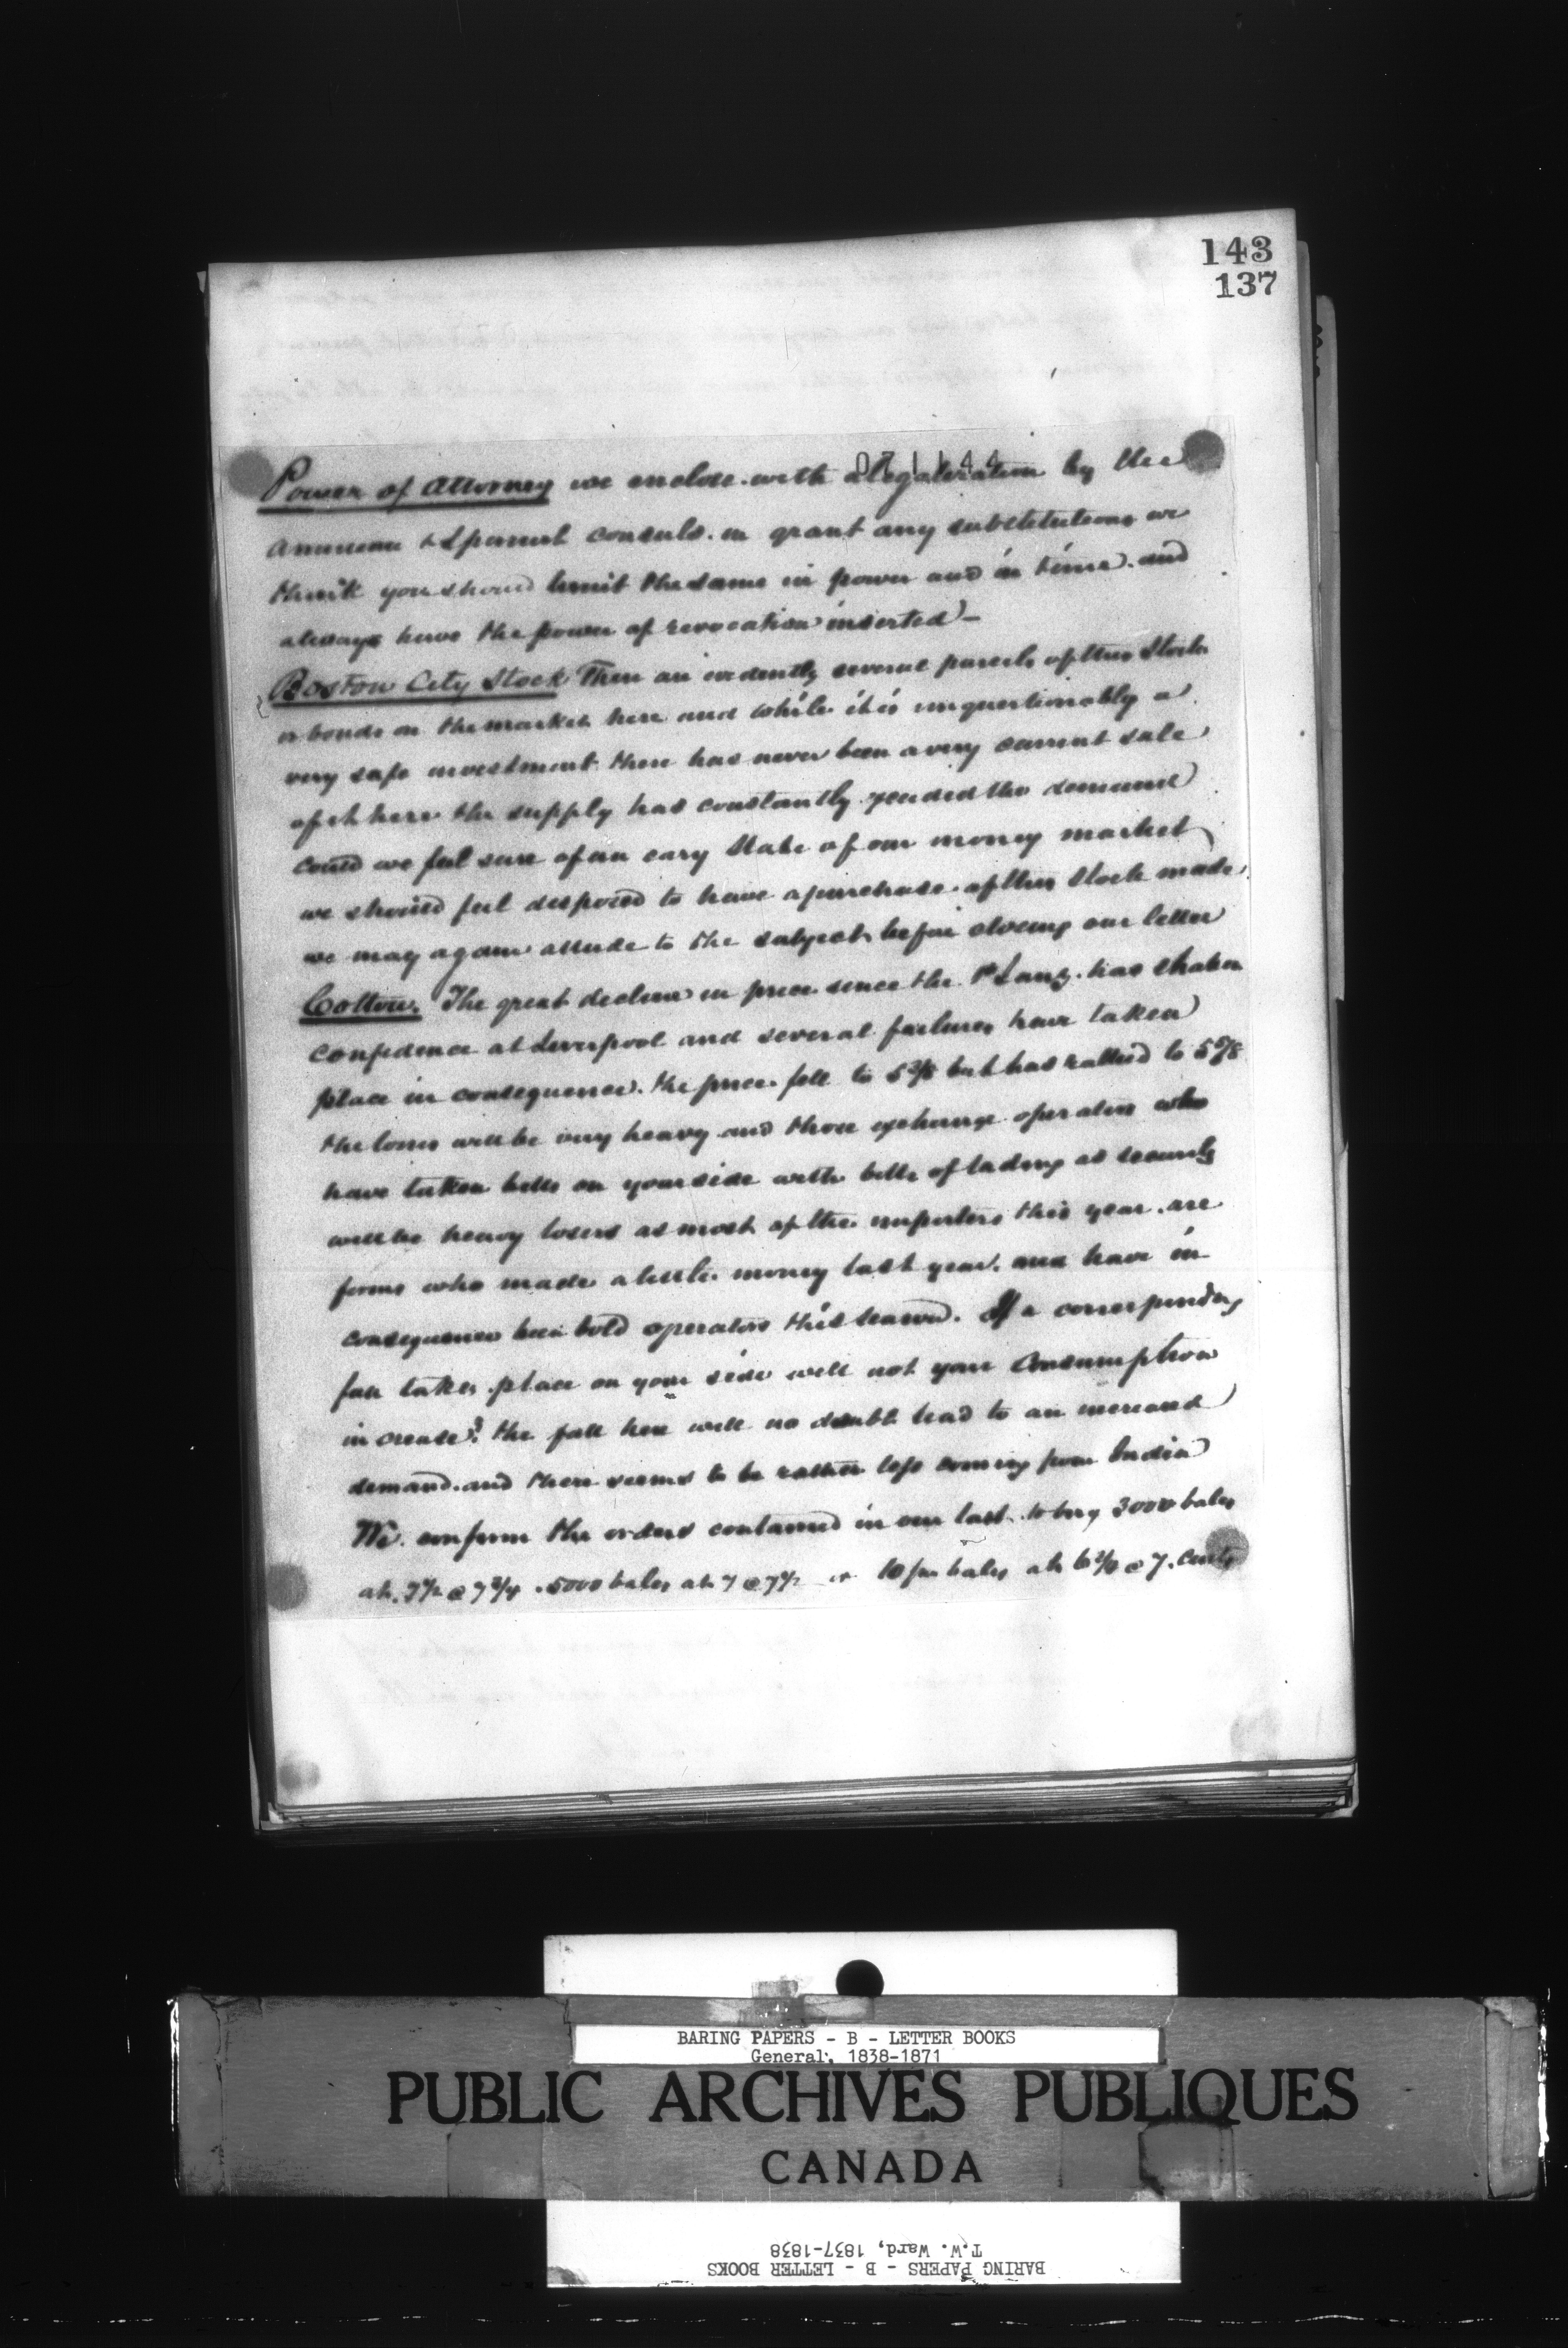 143
137
071144
Power of Attorney we enclose with a legalization by the
American & Spanish consuls. in grant any substitutions we
think you should limit the same in power and in time. and
always have the power of revocation inserted –
Boston City Stock There are evidently several parcels of this Stock
or bonds on the market here and while it is unquestionably a
very safe investment there has never been a very current sale
of it here the supply has constantly exceeded the demand
could we feel sure of an easy State of our money market
we should feel disposed to have a purchase of this Stock made
we may again allude to the subject before closing our letter
Cotton. The great decline in price since the has shaken
confidence at Liverpool and several failures have taken
place in consequence. the price fell to 5 3/8 but has rallied to 5 5/8
the losses will be very heavy and those exchange operators who
have taken bills on your side with bills of lading as security
will be heavy losers as most of the importers this year are
firms who made a little money last year. and have in
consequence been bold operators this season. If a corresponding
fall takes place on your side will not your Consumption
increase? the fall here will no doubt lead to an increased
demand. and there seems to be rather less coming from India
We confirm the orders contained in our last to buy 3000 bales
at. 7 1/2 @ 7 3/4 . 5000 bales at 7 @ 7 1/2 or 10/m bales at @ 7. Cents
BARING PAPERS - B - LETTER BOOKS
General, 1838-1871
PUBLIC ARCHIVES PUBLIQUES
CANADA
T.W. Ward, 1837-1838
BARING PAPERS - B - LETTER BOOKS